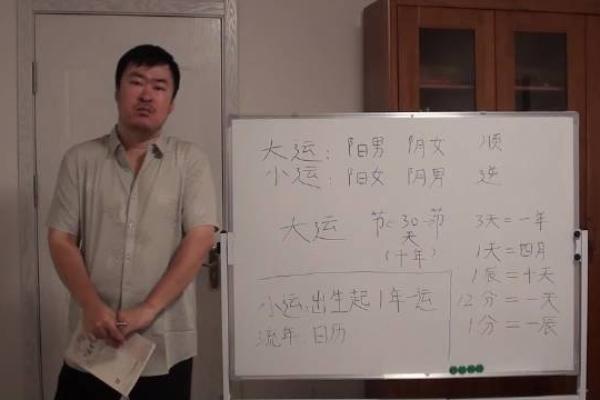 大运：阳男 阴女 顺
小运：阳女 阴男 逆
大运 节←30→节
天
（十年）
3天=一年
1天=四月
1辰=十天
12分=一天
1分=一辰
小运：出生起1年一运
流年：日历